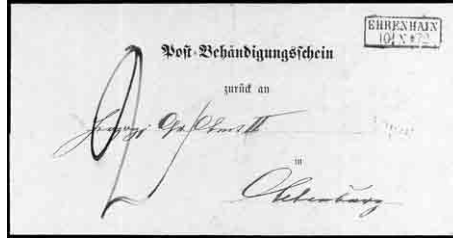 EHRENHAIN
10 N 72
Post-Behändigungsschein
zurück an
II
in
Altenburg